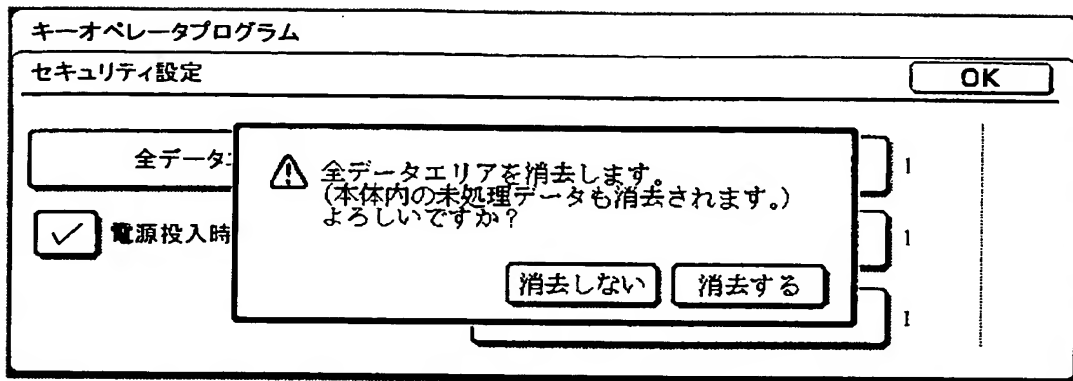 キーオペレータプログラム
セキュリティ設定
OK
全データエ
1
⚠ 全データエリアを消去します。
(本体内の未処理データも消去されます。)
よろしいですか?
電源投入時
1
消去しない 消去する
1